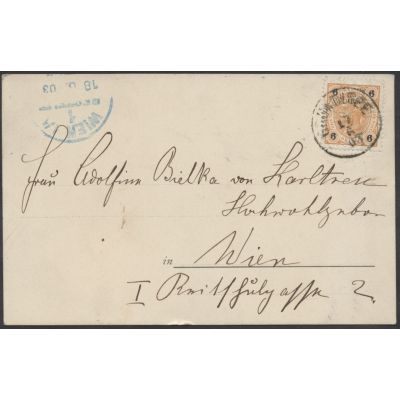 WIEN
1
18 03
6 6
6 6
17
03
Frau Adolfine Bielka von Karltreu
Hochwohlgebor
in Wien
I Reitschulgasse 2.